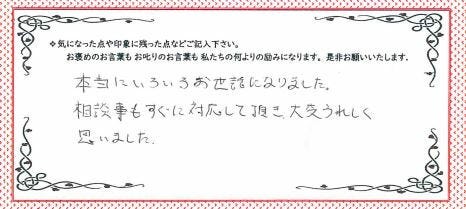 ※気になった点や印象に残った点などご記入下さい。
お褒めのお言葉も お叱りのお言葉も 私たちの何よりの励みになります。是非お願いいたします。
本当にいろいろお世話になりました。
相談事もすぐに対応して頂き、大変うれしく
思いました。